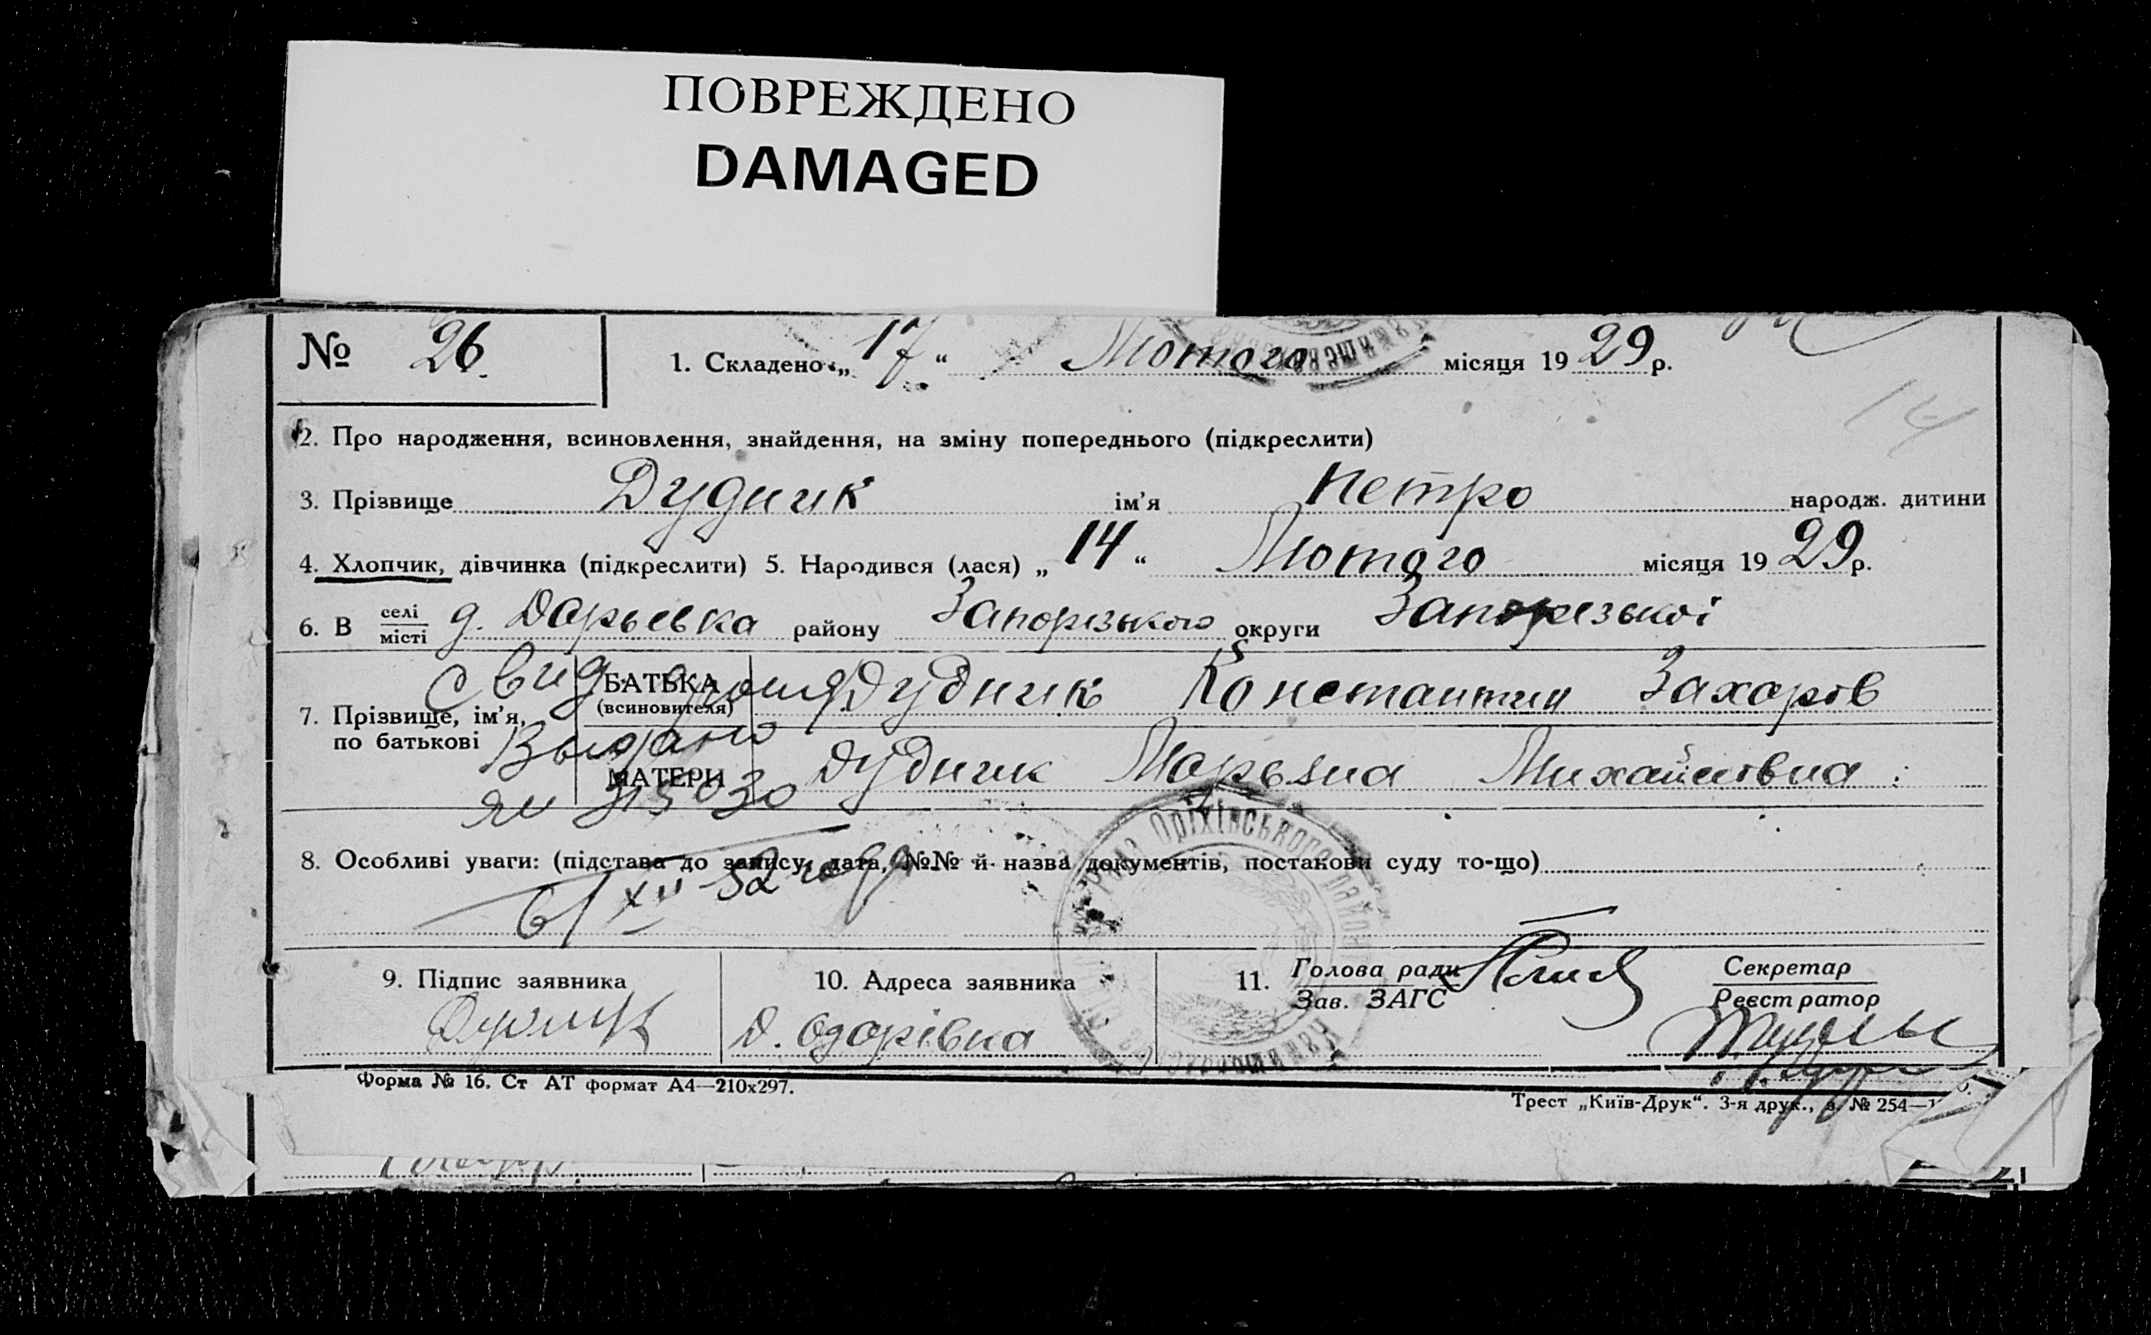 ПОВРЕЖДЕНО
DAMAGED
№ 26. 1. Складено „17“ Лютого місяця 1929 р.
14
2. Про народження, всиновлення, знайдення, на зміну попереднього (підкреслити)
3. Прізвище Дудник ім’я Петро народж. дитини
4. Хлопчик, дівчинка (підкреслити) 5. Народився (лася) „14“ Лютого місяця 1929 р.
6. В селі/місті д. Дарьевка району Запорізького округи Запорізької
7. Прізвище, ім’я, по батькові
БАТЬКА (всиновителя) Дудник Константин Захаров
МАТЕРИ Дудник Марьяна Михайловна
Свид.
Выдано
ЯЮ 315030
6/XII-52 года
8. Особливі уваги: (підстава до запису, дата, №№ й назва документів, постанови суду то-що)
Оріхівського район
9. Підпис заявника 10. Адреса заявника 11. Голова ради/Зав. ЗАГС Секретар/Реєстратор
Дудник Д.
Форма № 16. Ст АТ формат А4—210х297.
Трест „Київ-Друк“. 3-я друк., з. № 254—